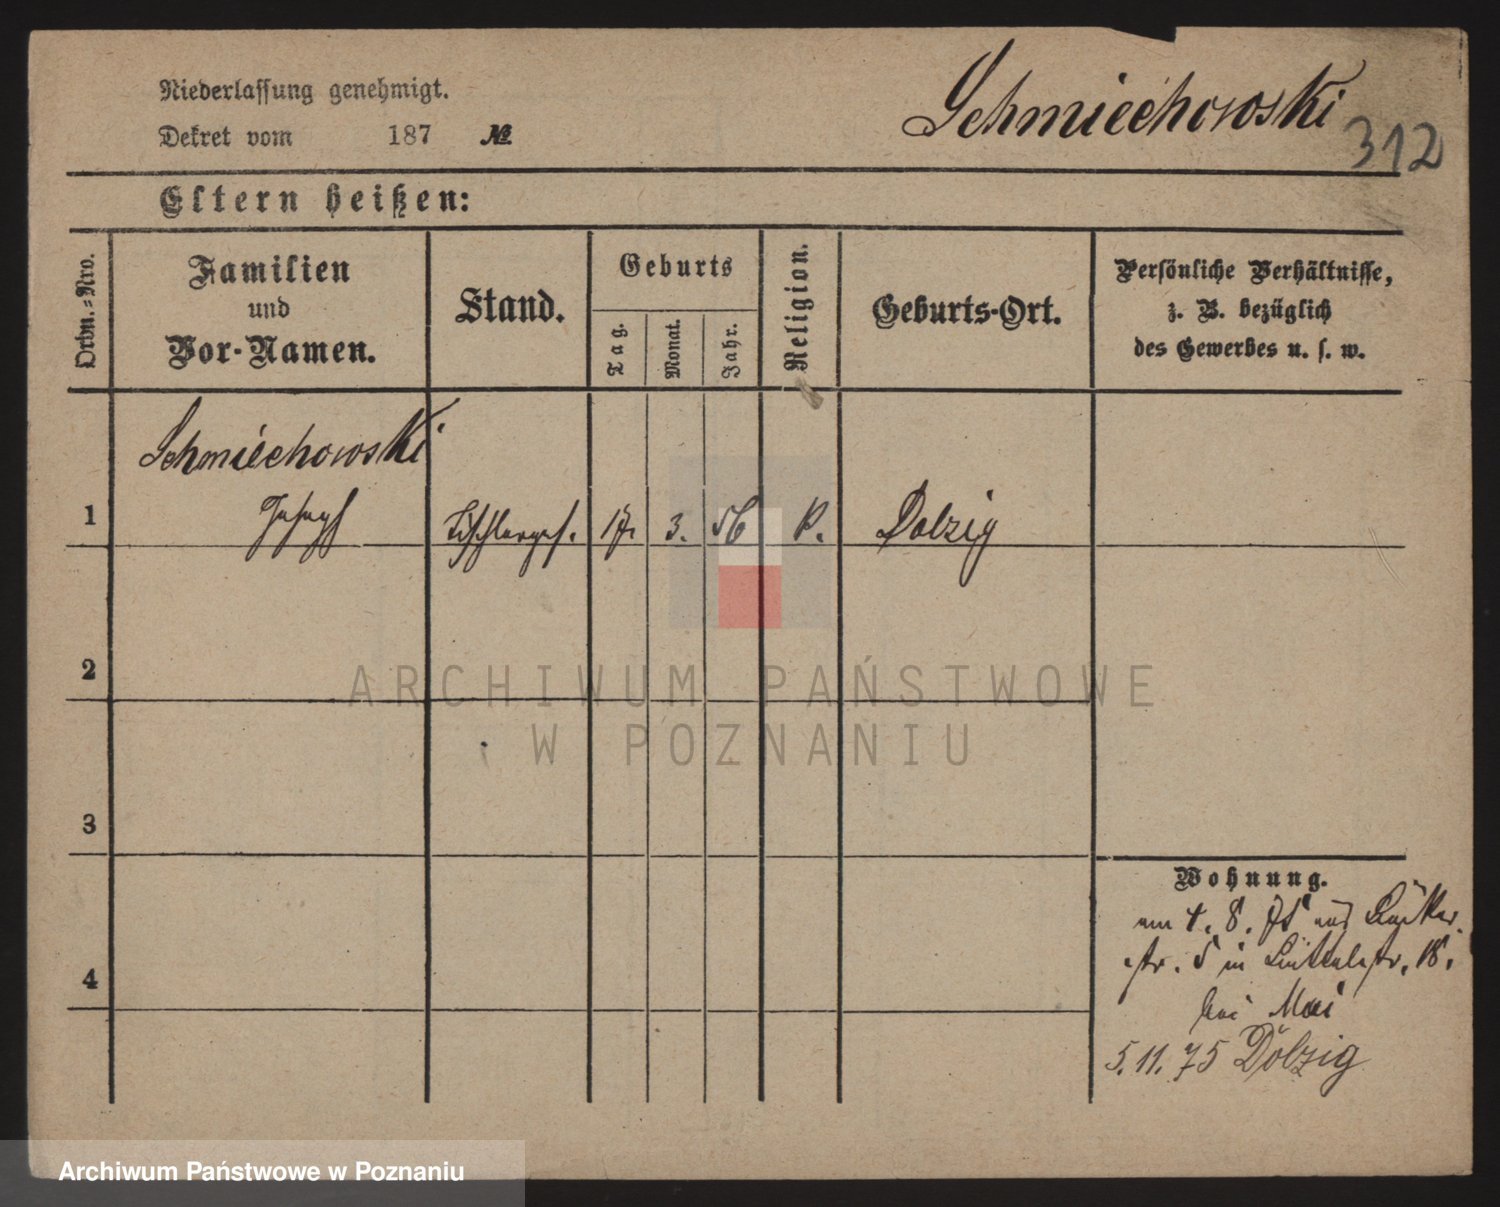 Niederlassung genehmigt.
Dekret vom 187 №
Schmiechowski
312
Eltern heißen:
Ordn.=Nro.
Familien
und
Vor-Namen.
Stand.
Geburts
Tag.
Monat.
Jahr.
Religion.
Geburts-Ort.
Persönliche Verhältnisse,
z. B. bezüglich
des Gewerbes u. s. w.
Schmiechowski
1 Joseph Tischlerges. 17. 3. 56 k. Dolzig
2
3
4
Wohnung.
am 4. 8. 75 aus
str. 5 in 18.
bei Mai
5. 11. 75 Dolzig
ARCHIWUM PAŃSTWOWE
W POZNANIU
Archiwum Państwowe w Poznaniu